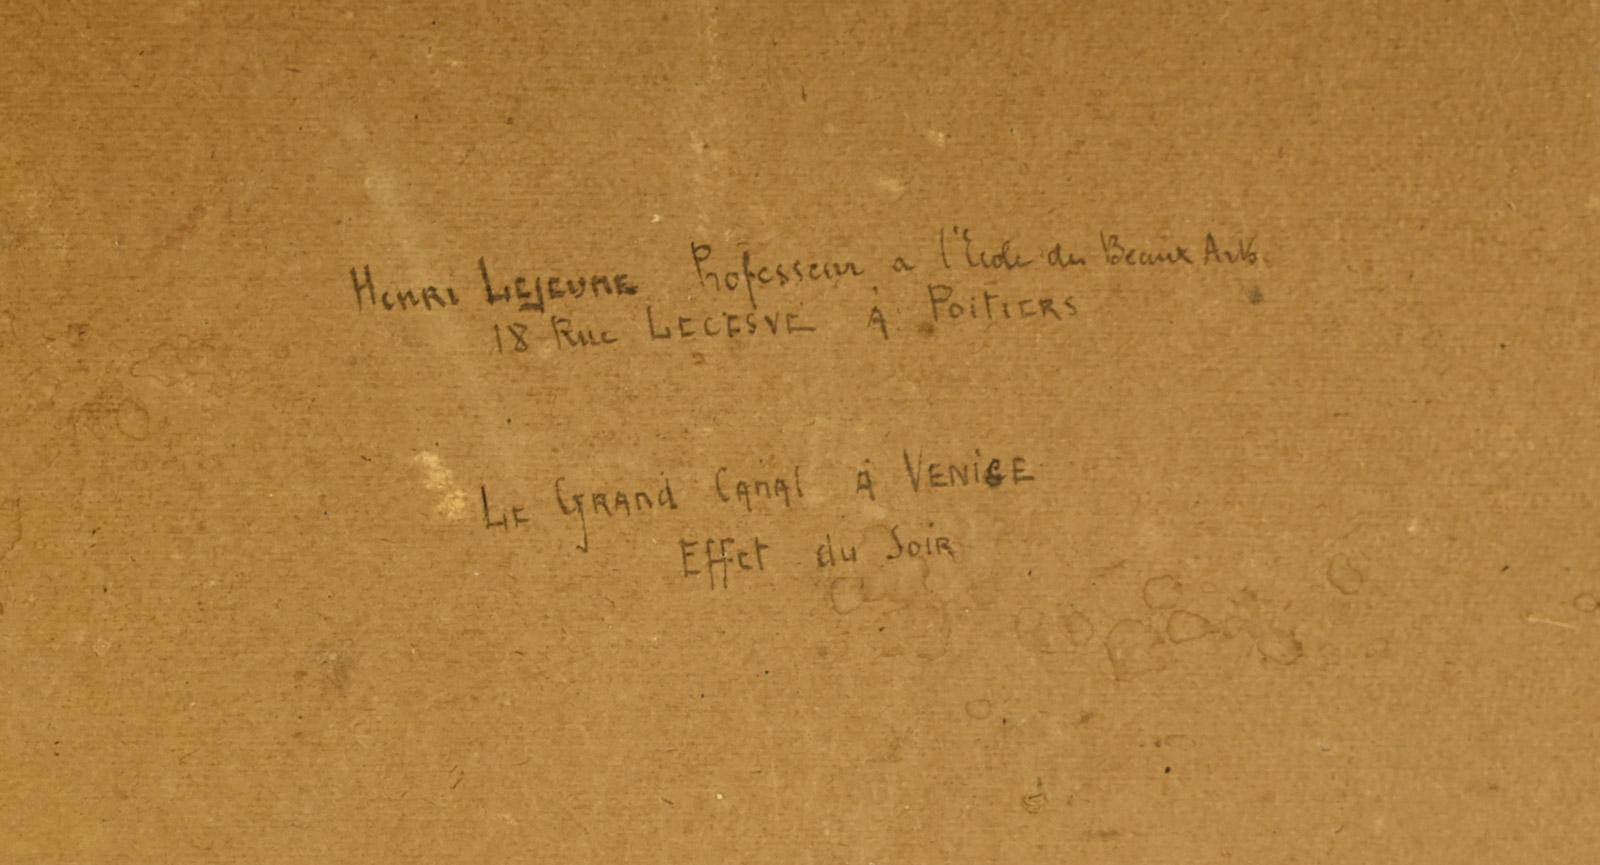 Henri LEJEUNE Professeur a l'Ecole des Beaux Arts.
18 Rue LECESVE A POITIERS
LE GRANd CANAl A VENiSE
Effet du Soir